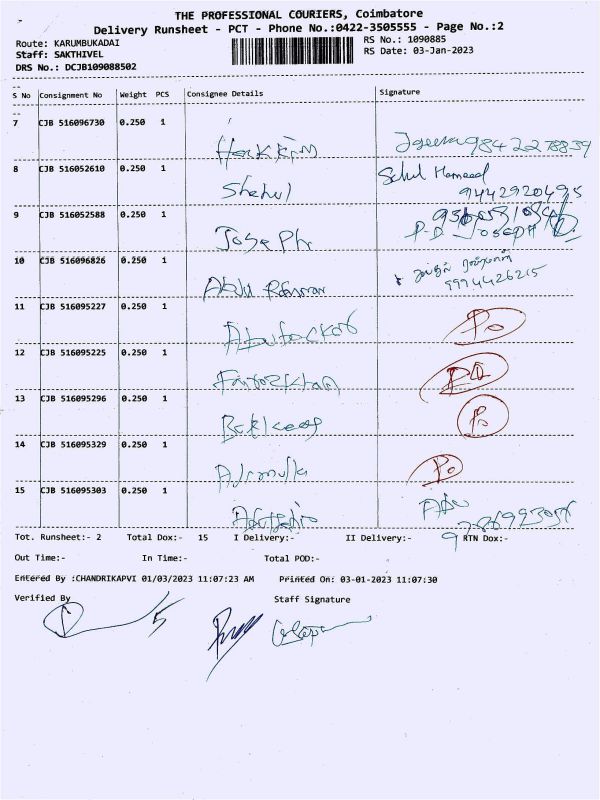 THE PROFESSIONAL COURIERS, Coimbatore
Delivery Runsheet - PCT - Phone No.:0422-3505555 - Page No.:2
Route: KARUMBUKADAI RS No.: 1090885
Staff: SAKTHIVEL RS Date: 03-Jan-2023
DRS No.: DCJB109088502
S No Consignment No Weight PCS Consignee Details Signature
7 CJB 516096730 0.250 1
Hakkim 9842278839
8 CJB 516052610 0.250 1 Sahul Hameed
Shahul 9442920495
9 CJB 516052588 0.250 1
Joseph P.D. JOSEPH
10 CJB 516096826 0.250 1
Abdul Rahman 9994426215
11 CJB 516095227 0.250 1
Abubackar Po
12 CJB 516095225 0.250 1
Fairozkhan
13 CJB 516095296 0.250 1
Po
14 CJB 516095329 0.250 1
Po
15 CJB 516095303 0.250 1
Abu
Tot. Runsheet:- 2 Total Dox:- 15 I Delivery:- II Delivery:- RTN Dox:-
Out Time:- In Time:- Total POD:-
Entered By :CHANDRIKAPVI 01/03/2023 11:07:23 AM Printed On: 03-01-2023 11:07:30
Verified By Staff Signature